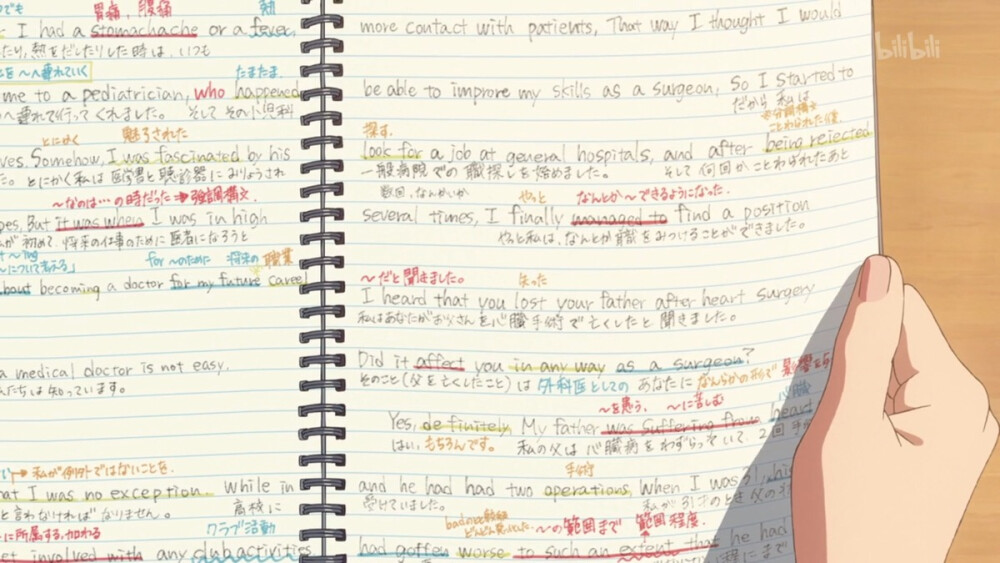 胃痛、腹痛
I had a stomachache or a fever,
たり、熱をだしたりした時は、いつも
を〜へ連れていく
たまたま
me to a pediatrician, who happened
へ連れて行ってくれました。そしてその小児科
とにかく 魅了された
ves. Somehow, I was fascinated by his
た。とにかく私は
〜なのは…の時だった⇒強調構文
pes. But it was when I was in high
が初めて、将来の仕事のために医者になろうと
〜について考える」
for 〜のために 将来の 職業
about becoming a doctor for my future career
a medical doctor is not easy.
たちは知っています。
私が例外ではないことを
at I was no exception. While in
と言わなければなりません。 高校に
に所属する、加わる クラブ活動
et involved with any club activities
more contact with patients, That way I thought I would
be able to improve my skills as a surgeon, So I started to
だから 私は
分詞構文
探す。 ことわられた後
look for a job at general hospitals, and after being rejected
一般病院での職探しを始めました。 そして何回かことわられたあと
数回、なんかいか やっと なんとか〜できるようになった。
several times, I finally managed to find a position
やっと私は、なんとか職をみつけることができました。
〜だと聞きました。 失った
I heard that you lost your father after heart surgery
私はあなたがお父さんを心臓手術で亡くしたと聞きました。
Did it affect you in any way as a surgeon?
そのこと(父を亡くしたこと)は外科医としてのあなたになんらかの形で影響を
〜を患う、〜に苦しむ 心臓
Yes, definitely, My father was suffering from heart
はい、もちろんです。 私の父は心臓病をわずらっていて、2回
手術
and he had had two operations, When I was 31, his
受けていました。 私が31才のとき父の
どんどん 〜の範囲まで 範囲、程度。
had gotten worse to such an extent that he had
程にまで
bilibili